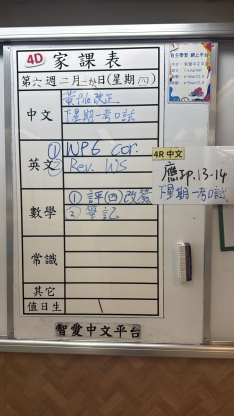 4D 家課表
第六週二月廿九日(星期四)
中文
黃作改正
下星期一考口試
英文
① WPG cor.
② Rev. WS
4R 中文
應JP.13-14
下星期一考口試
數學
① 評(四)改簽
② 筆記
常識
其它
值日生
智愛中文平台